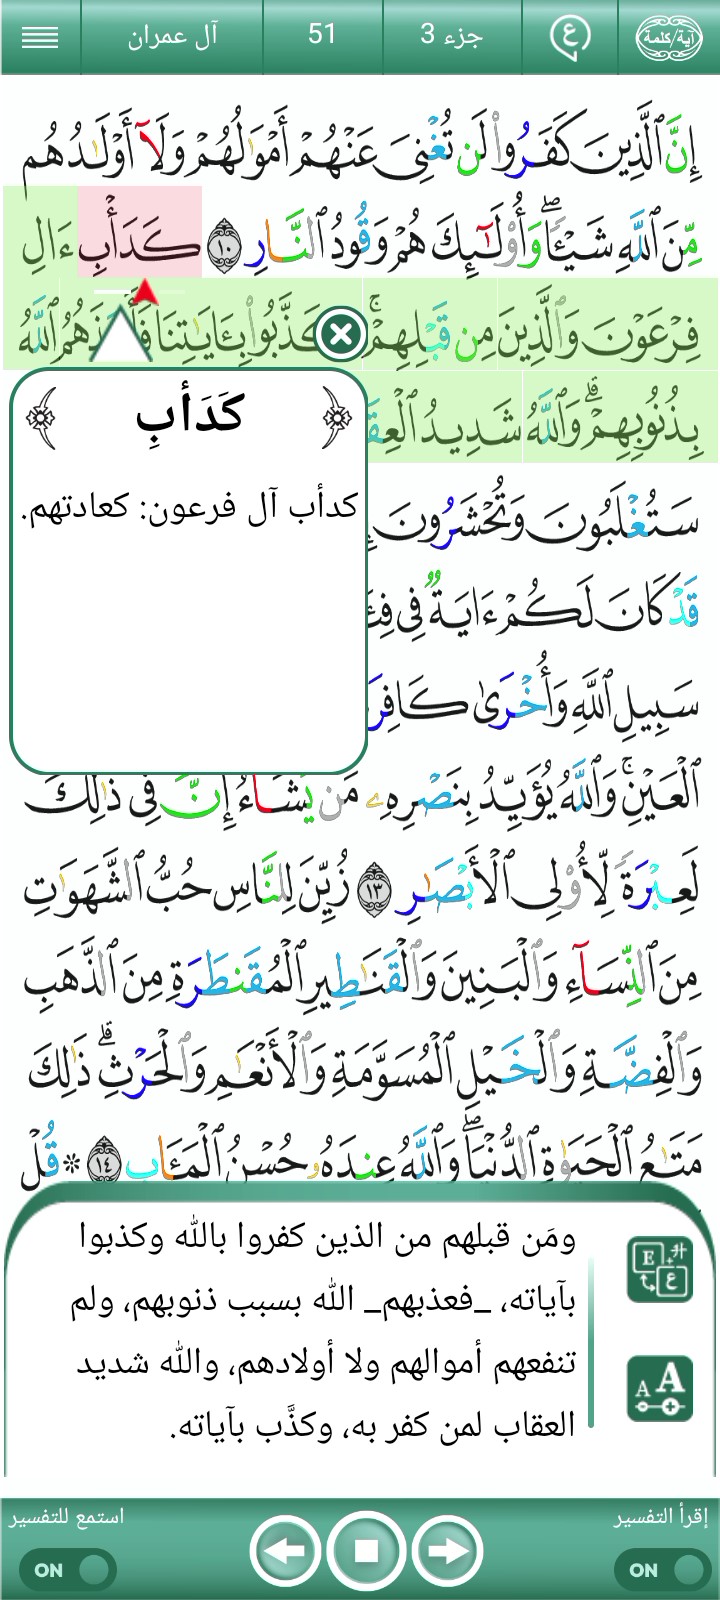 آل عمران 51 جزء 3 آية/كلمة
إِنَّ ٱلَّذِينَ كَفَرُوا۟ لَن تُغْنِىَ عَنْهُمْ أَمْوَٰلُهُمْ وَلَآ أَوْلَـٰدُهُم
مِّنَ ٱللَّهِ شَيْـًٔا ۖ وَأُو۟لَـٰٓئِكَ هُمْ وَقُودُ ٱلنَّارِ ١٠ كَدَأْبِ ءَالِ
فِرْعَوْنَ وَٱلَّذِينَ مِن قَبْلِهِمْ ۚ كَذَّبُوا۟ بِـَٔايَـٰتِنَا ٱللَّهُ
بِذُنُوبِهِمْ ۗ وَٱللَّهُ شَدِيدُ
كَدَأبِ
كدأب آل فرعون: كعادتهم.
سَتُغْلَبُونَ وَتُحْشَرُونَ
قَدْ كَانَ لَكُمْ ءَايَةٌ فِى
سَبِيلِ ٱللَّهِ وَأُخْرَىٰ
ٱلْعَيْنِ ۚ وَٱللَّهُ يُؤَيِّدُ بِنَصْرِهِۦ مَن يَشَآءُ إِنَّ فِى ذَٰلِكَ
لَعِبْرَةً لِّأُو۟لِى ٱلْأَبْصَـٰرِ ١٣ زُيِّنَ لِلنَّاسِ حُبُّ ٱلشَّهَوَٰتِ
مِنَ ٱلنِّسَآءِ وَٱلْبَنِينَ وَٱلْقَنَـٰطِيرِ ٱلْمُقَنطَرَةِ مِنَ ٱلذَّهَبِ
وَٱلْفِضَّةِ وَٱلْخَيْلِ ٱلْمُسَوَّمَةِ وَٱلْأَنْعَـٰمِ وَٱلْحَرْثِ ۗ ذَٰلِكَ
مَتَـٰعُ ٱلْحَيَوٰةِ ٱلدُّنْيَا ۖ وَٱللَّهُ عِندَهُۥ حُسْنُ ٱلْمَـَٔابِ ١٤ ۞ قُلْ
ومَن قبلهم من الذين كفروا بالله وكذبوا
بآياته، _فعذبهم_ الله بسبب ذنوبهم، ولم
تنفعهم أموالهم ولا أولادهم، والله شديد
العقاب لمن كفر به، وكذَّب بآياته.
إقرأ التفسير استمع للتفسير
ON ON